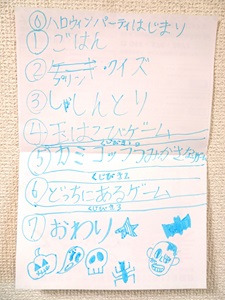 ⓪ハロウィンパーティはじまり
①ごはん
②ケーキ・クイズ
プリン
③しゃしんとり
④玉はこびゲーム
くじびき
⑤カミコップつみかさね
くじびき
⑥どっちにあるゲーム
くじびき
⑦おわり